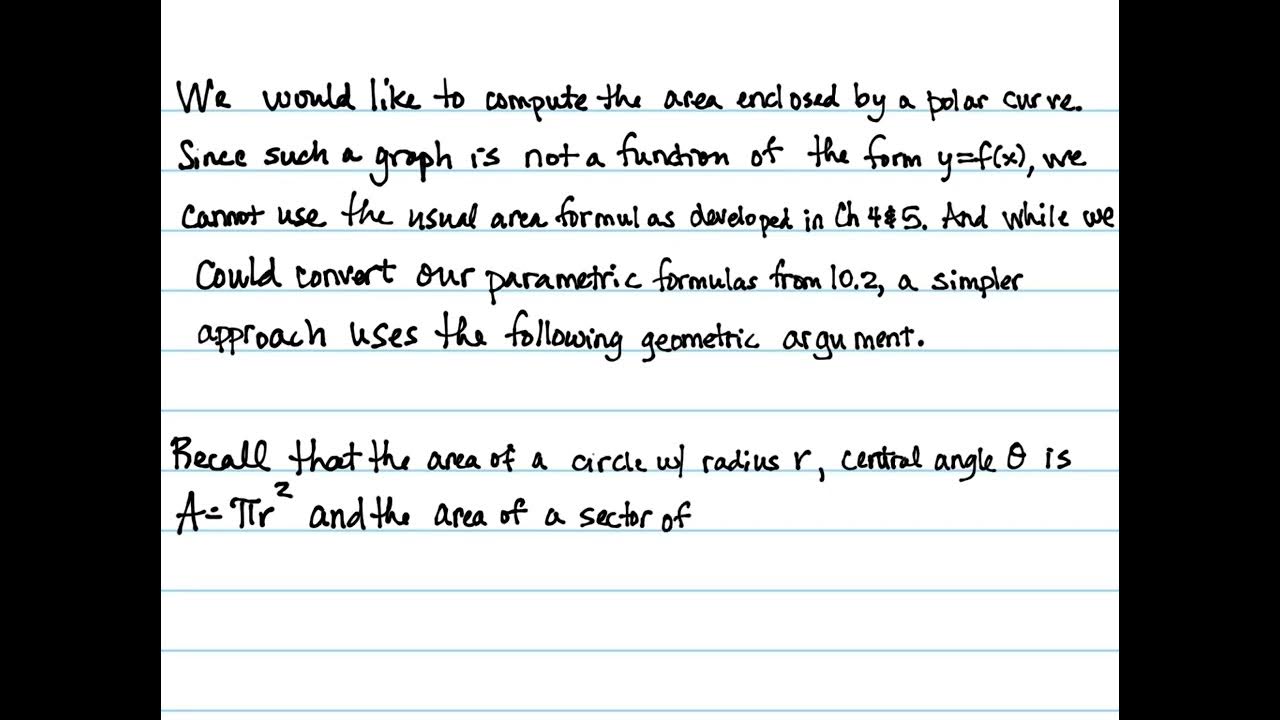 We would like to compute the area enclosed by a polar curve.
Since such a graph is not a function of the form y=f(x), we
cannot use the usual area formulas developed in Ch 4&5. And while we
could convert our parametric formulas from 10.2, a simpler
approach uses the following geometric argument.
Recall that the area of a circle w/ radius r, central angle θ is
A=πr² and the area of a sector of